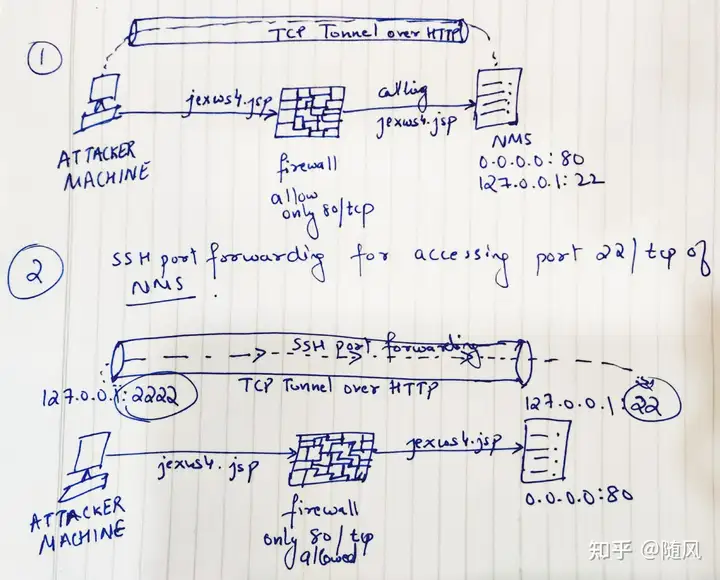 ①
TCP Tunnel over HTTP
jexws4.jsp
calling
jexws4.jsp
ATTACKER
MACHINE
firewall
allow
only 80/tcp
NMS
0.0.0.0:80
127.0.0.1:22
②
SSH port forwarding for accessing port 22/tcp of
NMS.
SSH port forwarding
TCP Tunnel over HTTP
127.0.0.1:2222
127.0.0.1:22
jexws4.jsp
jexws4.jsp
ATTACKER
MACHINE
firewall
only 80/tcp
allowed
0.0.0.0:80
知乎 @随风